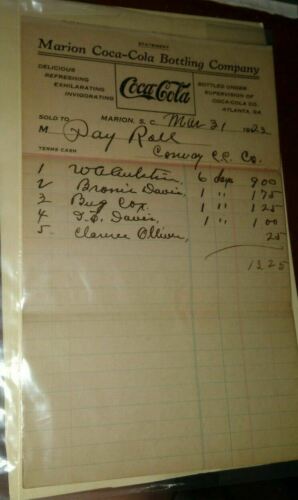 STATEMENT
Marion Coca-Cola Bottling Company
DELICIOUS
REFRESHING
EXHILARATING
INVIGORATING
Coca-Cola
BOTTLED UNDER
SUPERVISION OF
COCA-COLA CO.
ATLANTA, GA
SOLD TO MARION, S. C. Mar 31 1923
M Pay Roll
TERMS CASH Conway C.C. Co.
1 6 days 9 00
2 Bronie Davis, 1 " 1 75
3 Bug Cox, 1 " 1 25
4 Davis, 1 " 1 00
5. Clarence Olliver, 25
13 25